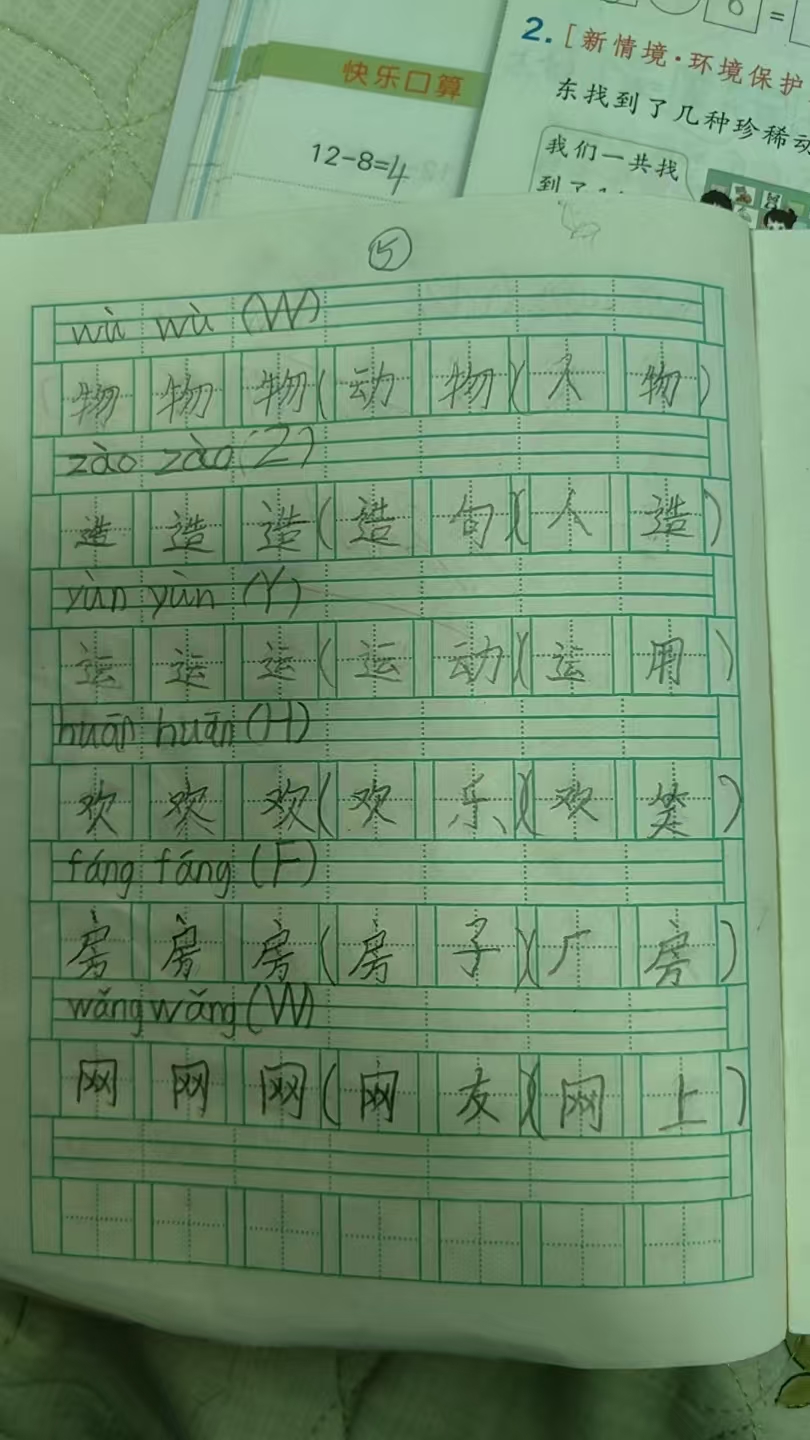 6 =
2. [新情境·环境保护
快乐口算
东找到了几种珍稀动
12-8=4
我们一共找
到了
⑤
wù wù (W)
物 物 物(动 物)(人 物)
zào zào (Z)
造 造 造(造 句)(人 造)
yùn yùn (Y)
运 运 运(运 动)(运 用)
huān huān (H)
欢 欢 欢(欢 乐)(欢 笑)
fáng fáng (F)
房 房 房(房 子)(厂 房)
wǎng wǎng (W)
网 网 网(网 友)(网 上)